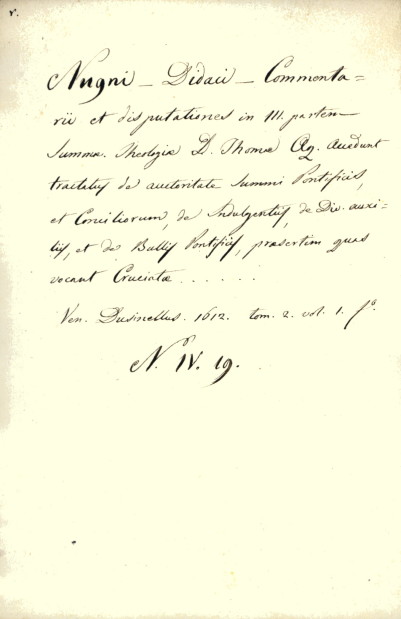 r.
Nugni _ Didaci _ Commenta=
rii et disputationes in III. partem
Summæ. Theologiæ D. Thomæ Aq. Accedunt
tractatus de auctoritate Summi Pontificis,
et Conciliorum, de Indulgentiis, de Div. auxi=
liis, et de Bullis Pontificis, præsertim quas
vocant Cruciatæ . . . . . .
Ven. Dusinellus. 1612. tom. 2. vol. 1. fo.
N. IV. 19.